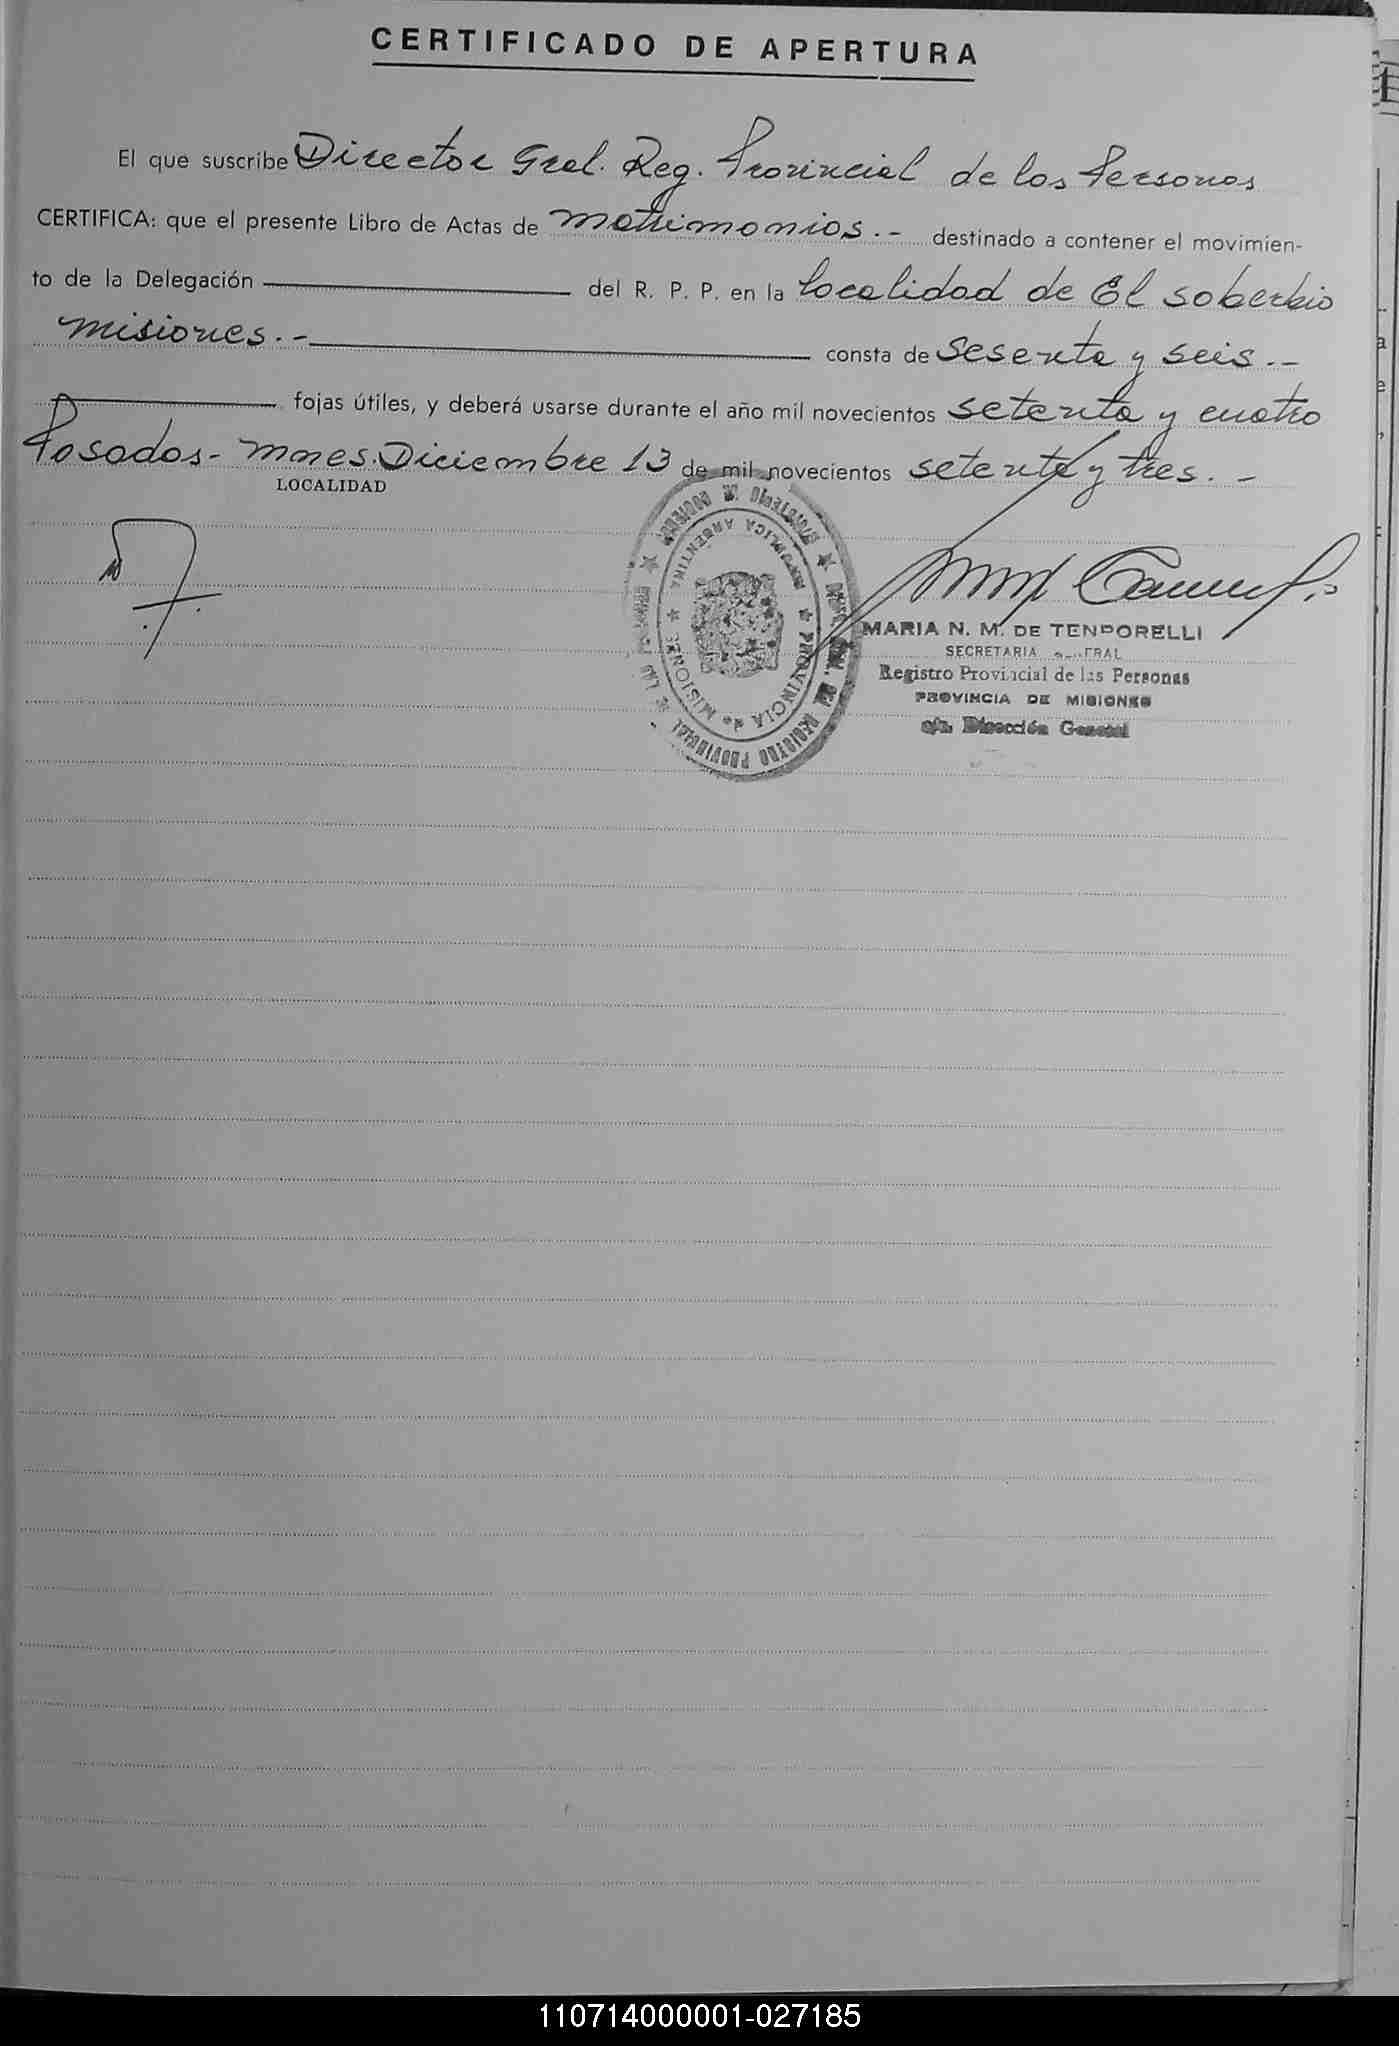 CERTIFICADO DE APERTURA
El que suscribe Director Gral. Reg. Provincial de los Personas
CERTIFICA: que el presente Libro de Actas de matrimonios.- destinado a contener el movimien-
to de la Delegación del R. P. P. en la localidad de El soberbio
misiones.- consta de sesenta y seis.-
fojas útiles, y deberá usarse durante el año mil novecientos setenta y cuatro
Posadas- mnes. Diciembre 13 de mil novecientos setenta y tres.-
LOCALIDAD
REPUBLICA ARGENTINA
PROVINCIA de MISIONES
REGISTRO PROVINCIAL DE LAS
MARIA N. M. DE TEMPORELLI
SECRETARIA
Registro Provincial de las Personas
PROVINCIA DE MISIONES
a/c. Dirección General
110714000001-027185